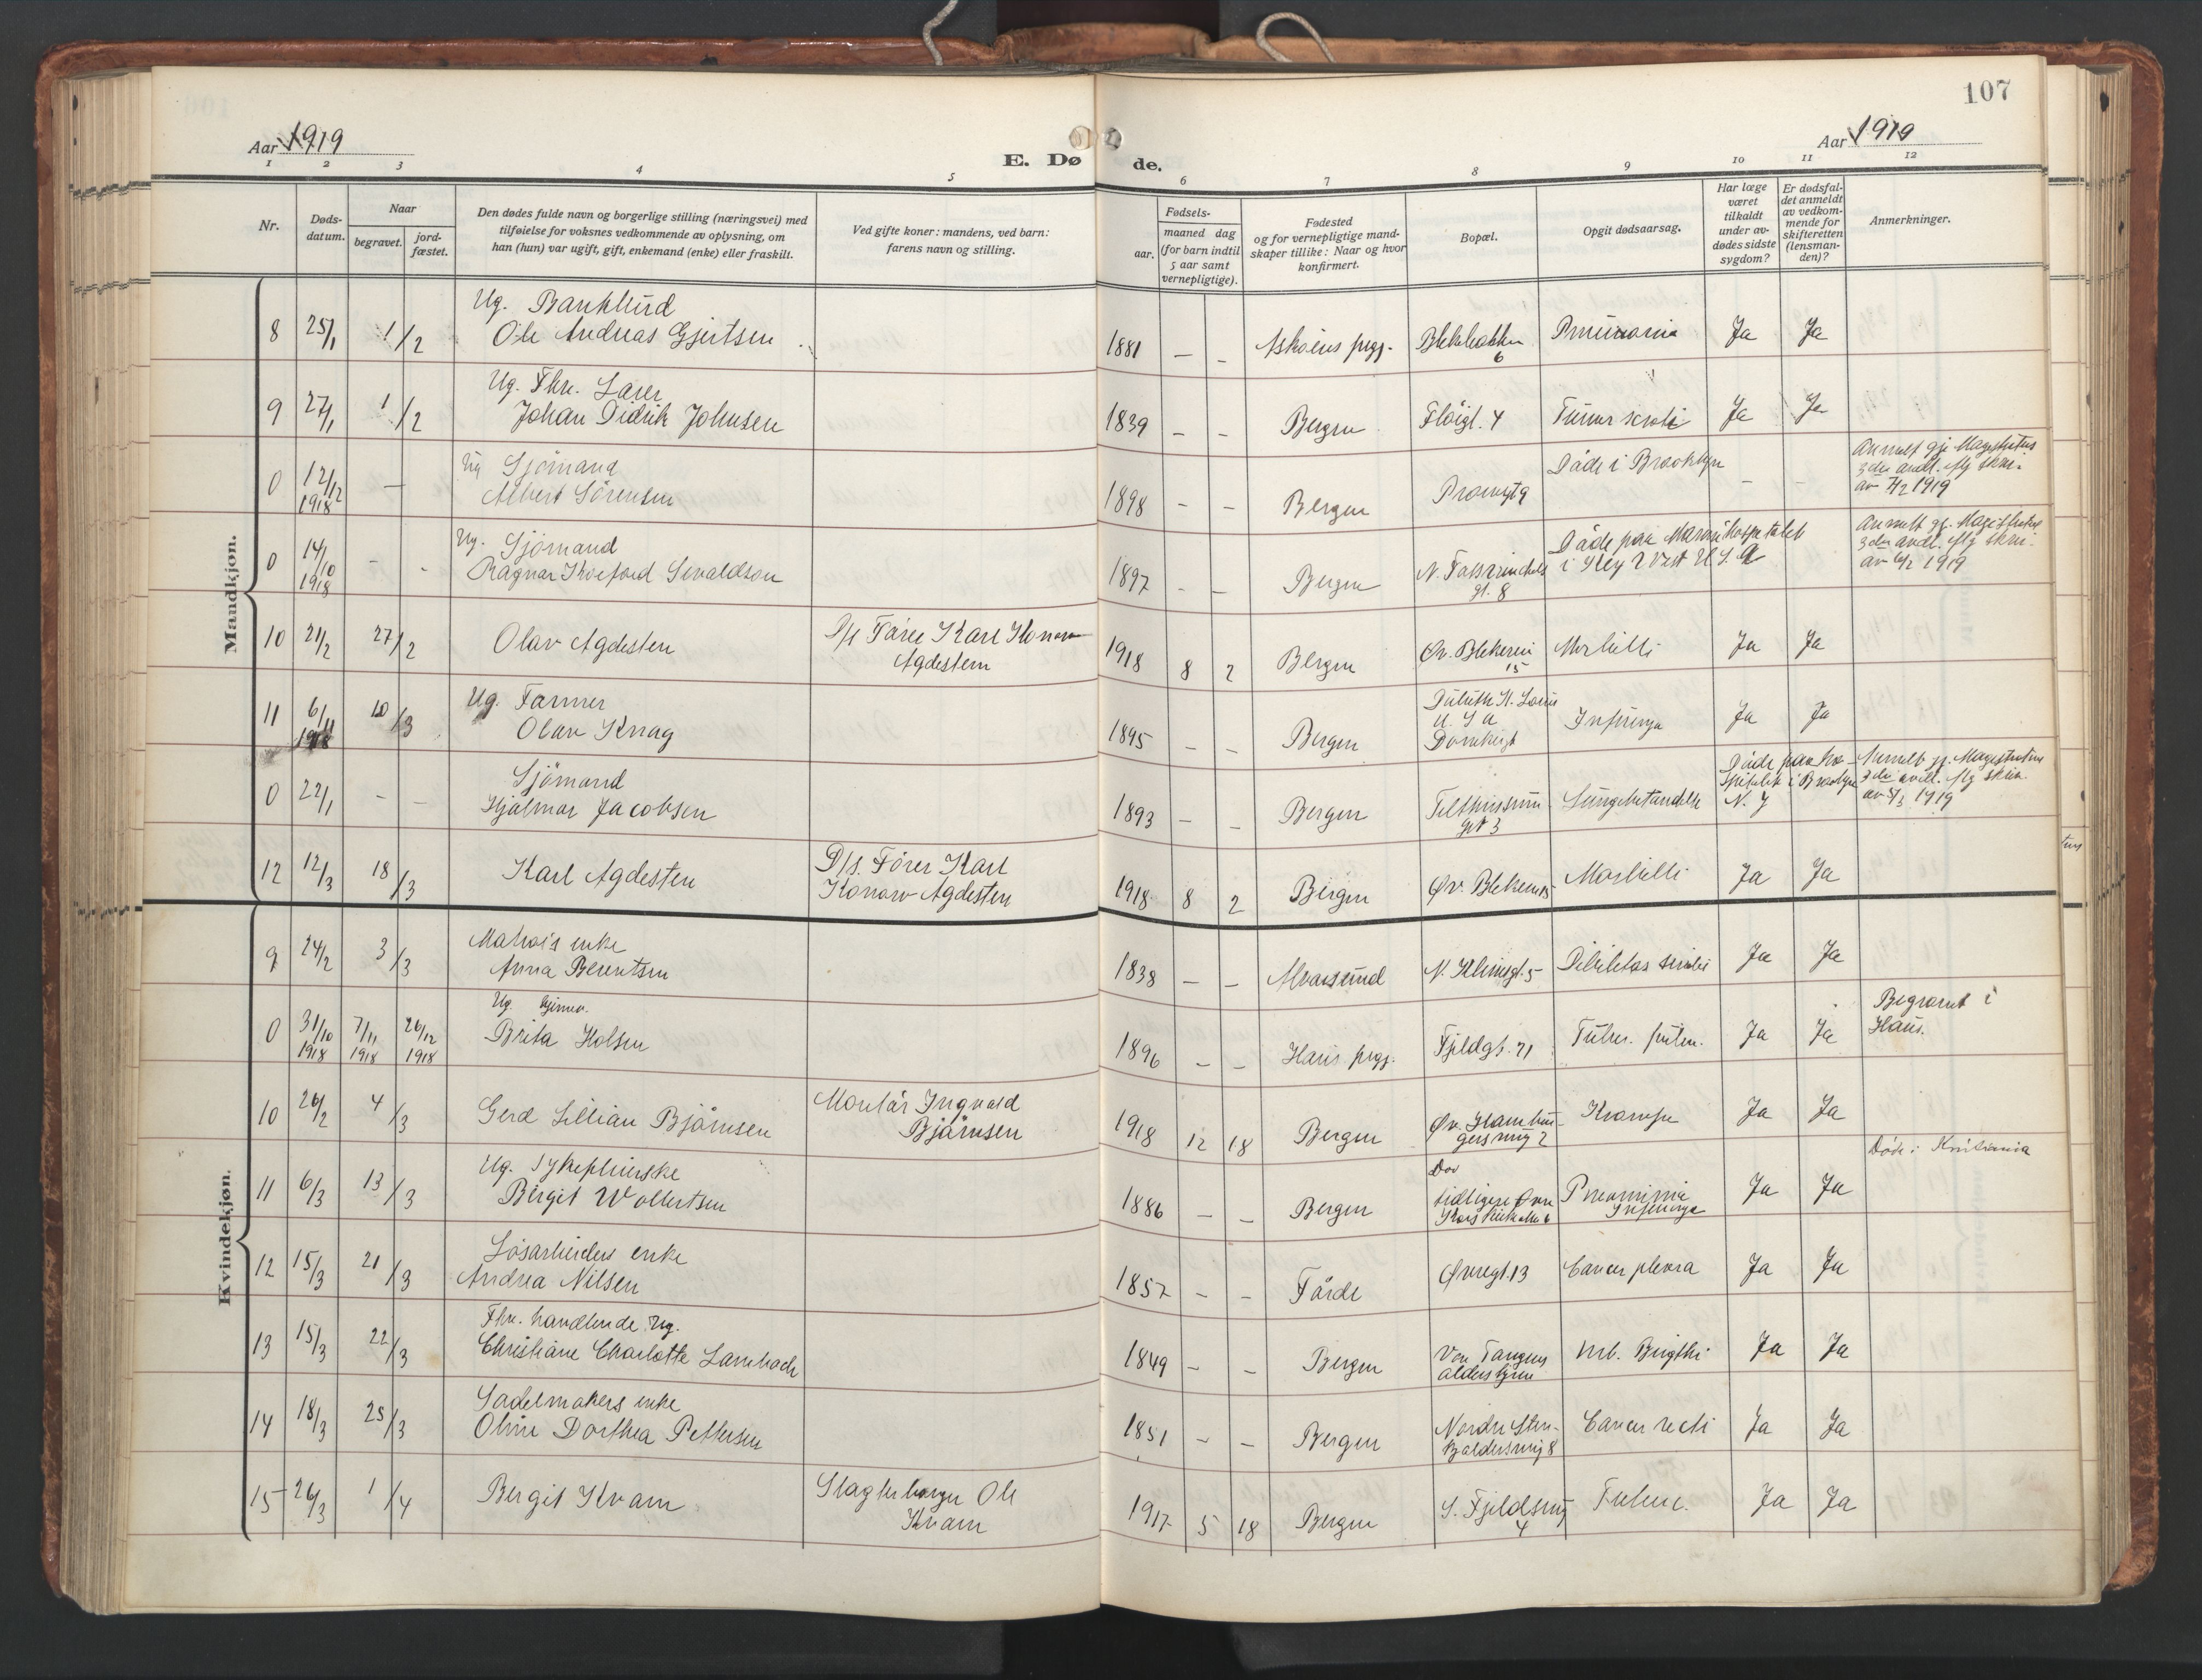 107
Aar 1919
E. Døde.
Aar 1919
1 2 3 4 5 6 7 8 9 10 11 12
Nr.
Døds-
datum.
Naar
begravet.
jord-
fæstet.
Den dødes fulde navn og borgerlige stilling (næringsvei) med
tilføielse for voksnes vedkommende av oplysning, om
han (hun) var ugift, gift, enkemand (enke) eller fraskilt.
Ved gifte koner: mandens, ved barn:
farens navn og stilling.
Fødsels-
aar.
maaned dag
(for barn indtil
5 aar samt
vernepligtige).
Fødested
og for vernepligtige mand-
skaper tillike: Naar og hvor
konfirmert.
Bopæl.
Opgit dødsaarsag.
Har læge
været
tilkaldt
under av-
dødes sidste
sygdom?
Er dødsfal-
det anmeldt
av vedkom-
mende for
skifteretten
(lensman-
den)?
Anmerkninger.
Mandkjøn.
8 25/1 1/2 Ug.
Ole Andreas Gjertsen
1881 – – prgj. 6 Ja Ja
9 27/1 1/2 Ug. Fhv.
Johan Didrik Johnsen
1839 – – Bergen Fløigt. 4 Tumor scroti Ja Ja
0 12/12 1918 – Ug Sjömand
Albert Sörensen
1898 – – Bergen Döde i Brooklyn – –
Anmelt gj. Magistratens
3die avdl. iflg skriv.
av 7/2 1919
0 14/10 1918 - - Ug. Sjömand
Ragnar Sivaldson
1897 - – Bergen gt. 8
Döde paa Marinehospitalet
i Key West U.S.A
Anmelt gj. Magistratens
3die avdl. iflg skriv.
av 6/2 1919
10 21/2 27/2 Olav Agdesten
D/s Förer Karl Konow
Agdesten
1918 8 2 Bergen Øv. Blekevei
15
Morbilli Ja Ja
11 6/11 1918 10/3 Ug. Farmer
Olav Knag
1895 – – Bergen
Duluth St. Louis
U.S.A
Domkirkegt
Influenza Ja Ja
0 22/1 – – Sjömand
Hjalmar Jacobsen
1893 – – Bergen
gt 3
Lungebetændelse
Döde paa ho-
spitalet i Brooklyn
N. Y
Anmelt gj. Magistratens
3die avdl. iflg skriv.
1919
12 12/3 18/3 Karl Agdesten
D/s. Förer Karl
Konow Agdesten
1918 8 2 Bergen Øv. Blekevei 15 Morbilli Ja Ja
Kvindekjøn.
9 24/2 3/3 Matros enke
Anna Berentsen
1838 – – Alversund Debilitas senilis Ja Ja
0 31/10 1918 7/11 1918 26/12 1918 Ug.
Brita Holsen
1896 – – Haus prgj. Fjeldgt. 21 Tuberc. pulm. Ja Ja
Begravet i
Haus.
10 26/2 4/3 Gerd Lillian Björnsen
Montör Ingvald
Björnsen
1918 12 18 Bergen 2 Krampe Ja Ja
11 6/3 13/3 Ug. Sykepleierske
Birgit Wollertsen
1886 – – Bergen
tidligere Øvre
6
Pneumonia
Influenza
Ja Ja
Död i Kristiania
12 15/3 21/3 Lösarbeiders enke
Andrea Nilsen
1857 – – Förde Øvregt. 13 Cancer pleura Ja Ja
13 15/3 22/3 Fhv. handlende Ug.
Christiane Charlotte Lambach
1849 – – Bergen
Von Tangens
alderskjem
Mb. Brigthi Ja Ja
14 18/3 25/3 Sadelmakers enke
Oline Dorthea Pettersen
1851 – – Bergen
Nordre Sten-
kjeldersmug 8
Cancer recti Ja Ja
15 26/3 1/4 Bergit Kvam
Slagterborger Ole
Kvam
1917 5 18 Bergen
S. Fjeldsmug
4
Tuberc. Ja Ja